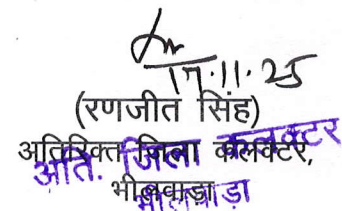 17.11.25
(रणजीत सिंह)
अतिरिक्त जिला कलक्टर,
अति. जिला कलक्टर
भीलवाड़ा
भीलवाड़ा